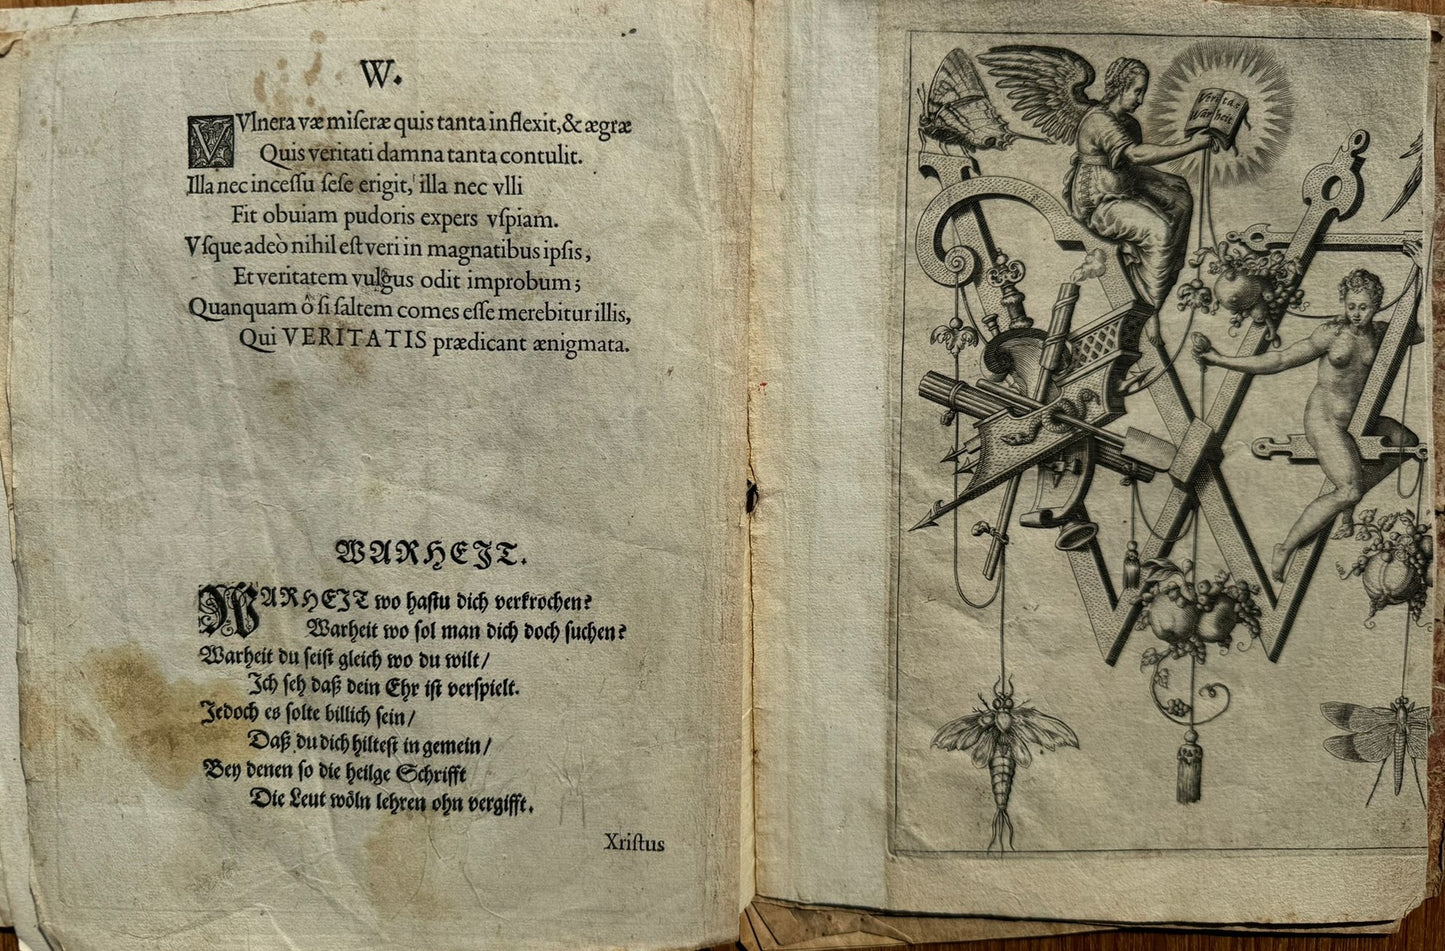 W.
VVInera væ miſeræ quis tanta inflexit, & ægræ
Quis veritati damna tanta contulit.
Illa nec inceſſu ſeſe erigit, illa nec vlli
Fit obuiam pudoris expers vſpiam.
Vſque adeò nihil eſt veri in magnatibus ipſis,
Et veritatem vulgus odit improbum;
Quanquam ô ſi ſaltem comes eſſe merebitur illis,
Qui VERITATIS prædicant ænigmata.
WARHEIT.
WARHEIT wo haſtu dich verkrochen?
Warheit wo ſol man dich doch ſuchen?
Warheit du ſeiſt gleich wo du wilt/
Ich ſeh daß dein Ehr iſt verſpielt.
Jedoch es ſolte billich ſein/
Daß du dich hilteſt in gemein/
Bey denen ſo die heilge Schrifft
Die Leut wöln lehren ohn vergifft.
Xriſtus
Veritas
Warheit